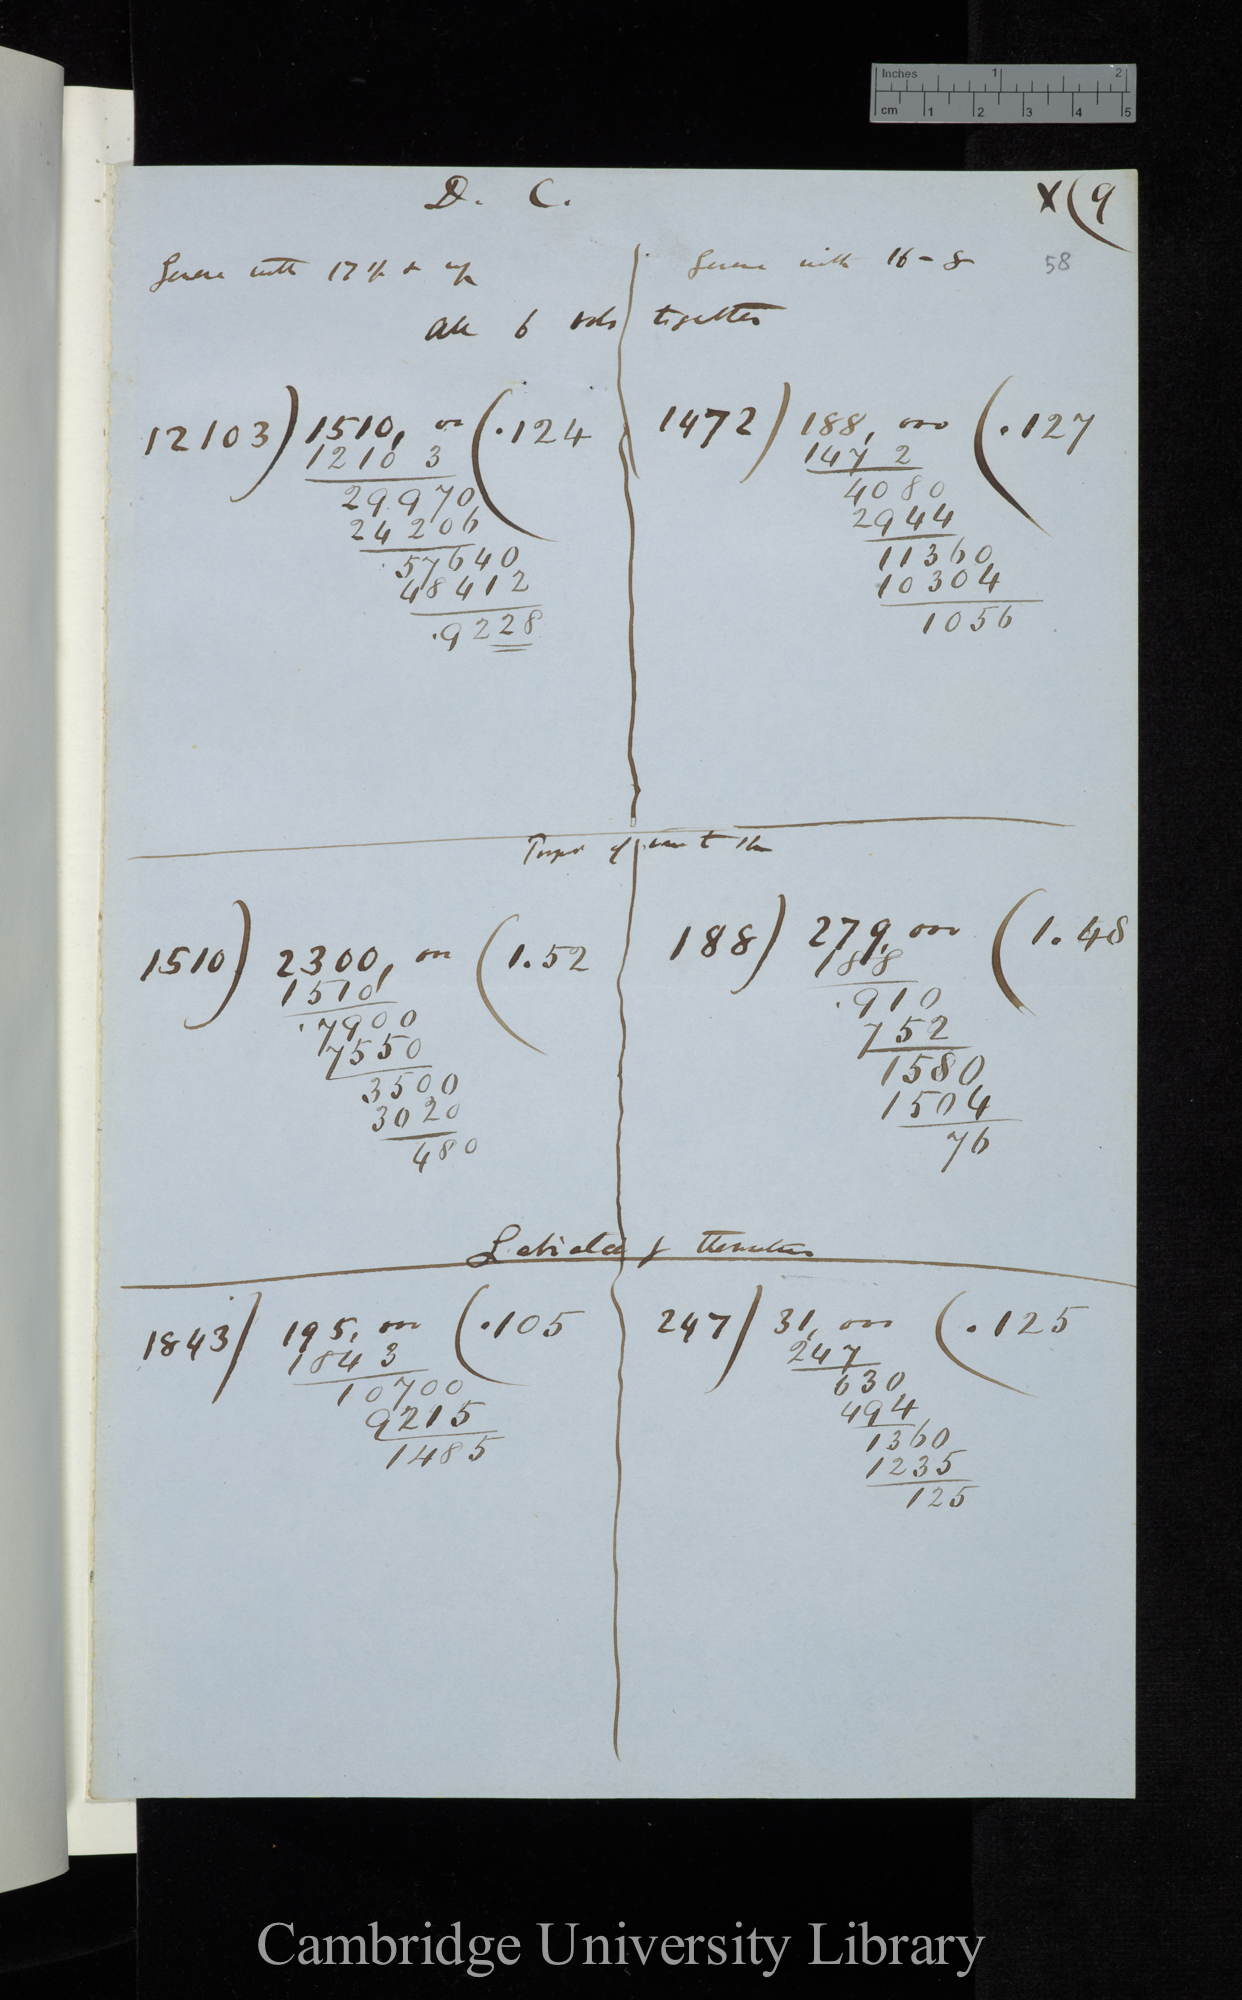 Inches 1 2
cm 1 2 3 4 5
D. C.
X (9
58
Genera with 17 & up
Genera with 16 - 8
All 6 vols together
12103) 1510, 00 (.124
1210 3
29970
24206
.57640
48412
.9228
1472) 188, 000 (.127
147 2
4080
2944
11360
10304
1056
1510) 2300, 00 (1.52
1510
.7900
7550
3500
3020
480
188) 279, 000 (1.48
188
.910
752
1580
1504
76
Labiatæ of themselves
1843) 195, 000 (.105
1843
10700
9215
1485
247) 31, 000 (.125
247
630
494
1360
1235
125
Cambridge University Library